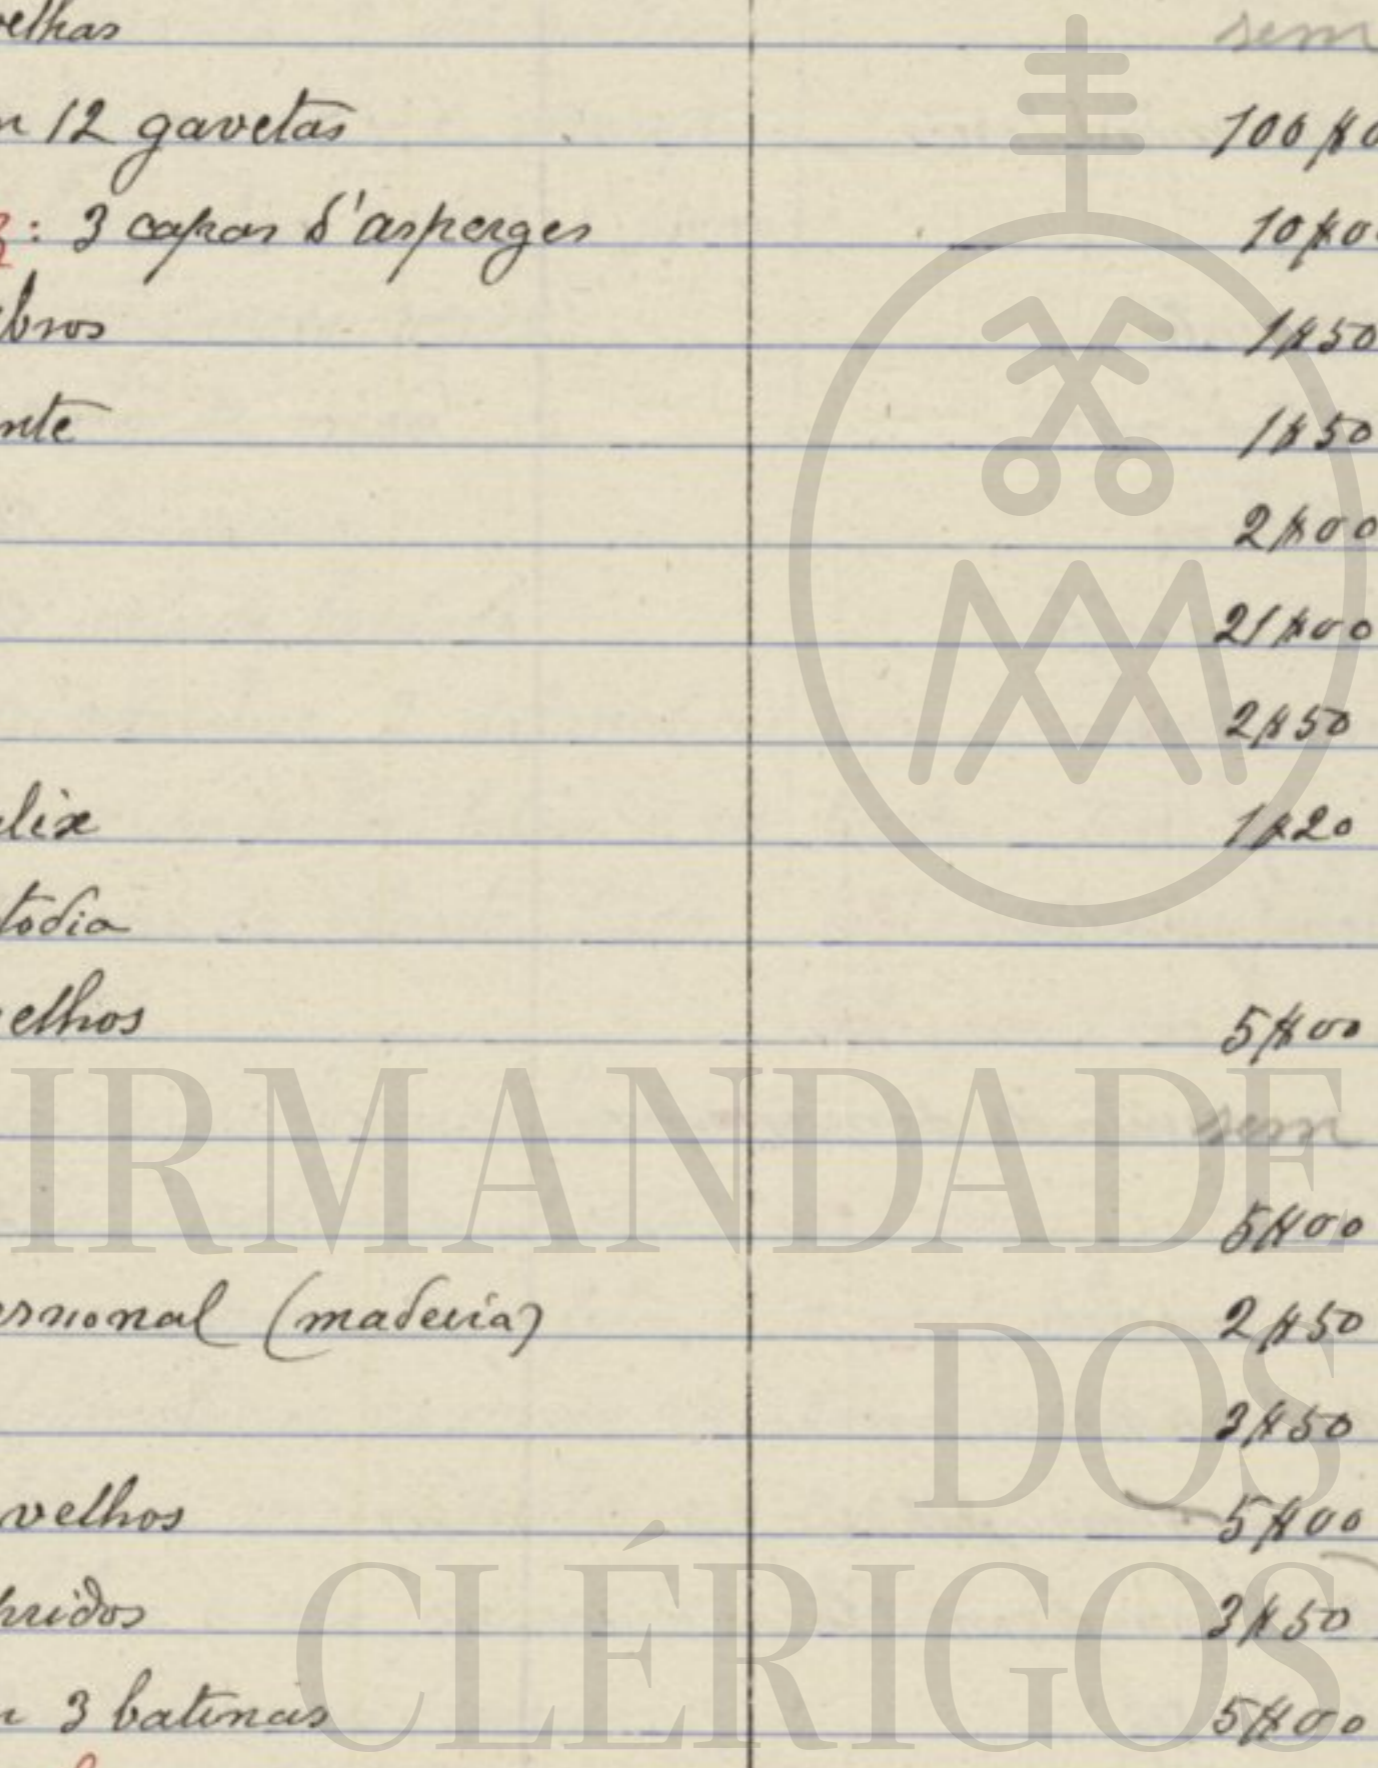 velhas sem
12 gavetas 100$0
: 3 capas d'asperges 10$0
bros 1$50
nte 1$50
2$00
21$00
2$50
lix 1$20
todia
velhos 5$00
sem
5$00
essional (madeira) 2$50
3$50
velhos 5$00
ridos 3$50
3 batinas 5$00
IRMANDADE
DOS
CLÉRIGOS